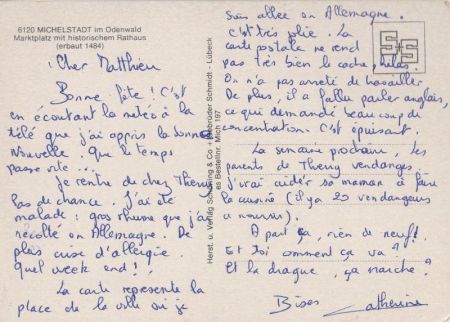 6120 MICHELSTADT im Odenwald
Marktplatz mit historischem Rathaus
(erbaut 1484)
Cher Matthieu
Bonne fête ! C'est
en écoutant la météo à la
télé que j'ai appris la bonne
nouvelle. Que le temps
passe vite...
Je rentre de chez Thierry
Pas de chance. J'ai été
malade : gros rhume que j'ai
récolté en Allemagne. De
plus crise d'allergie.
Quel week end !!
La carte représente la
place de la ville où je
Herst. u. Verlag Schöning & Co + Gebrüder Schmidt - Lübeck
Bestellnr. Mich 197
suis allée en Allemagne.
C'est très jolie. La
carte postale ne rend
pas très bien le cachet, hélas.
On n'a pas arrêté de travailler
De plus, il a fallu parler anglais,
ce qui demandé beaucoup de
concentration. C'est épuisant.
La semaine prochaine, les
parents de Thierry vendanges.
J'irai aider sa maman à faire
la cuisine (il y a 25 vendangeurs
à nourrir).
A part ça, rien de neuf.
Et toi comment ça va ?
Et la drague, ça marche ?
Bises Catherine